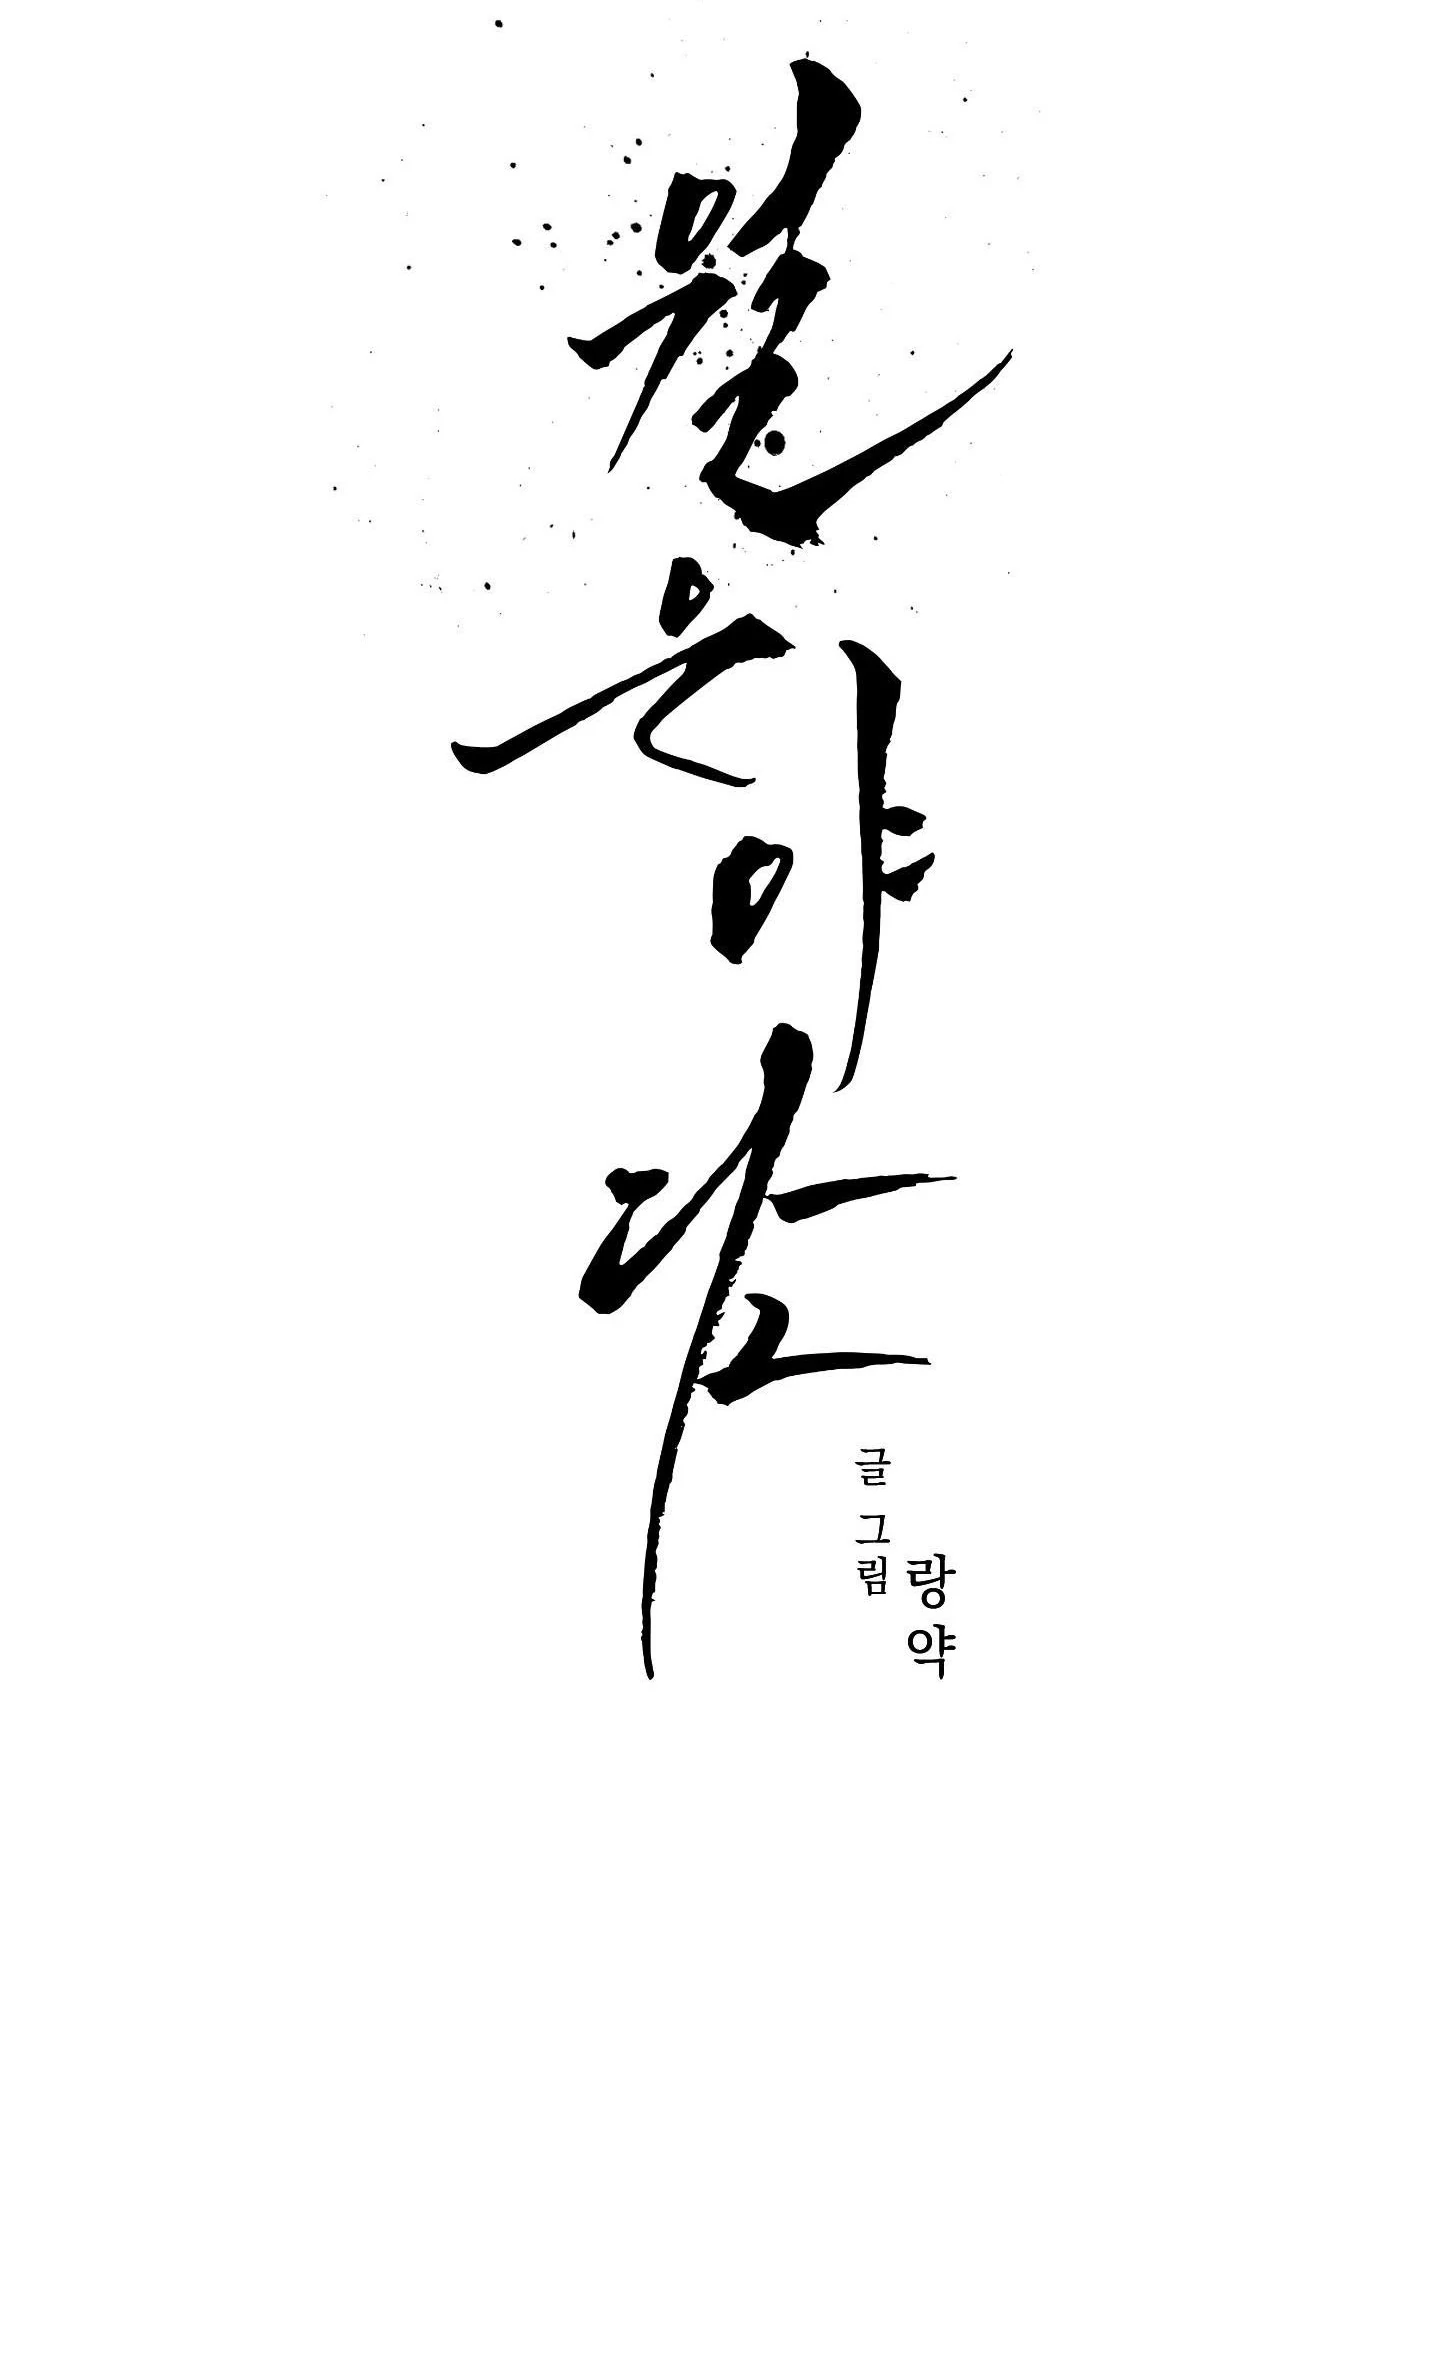 월운야담
글 그림
랑약